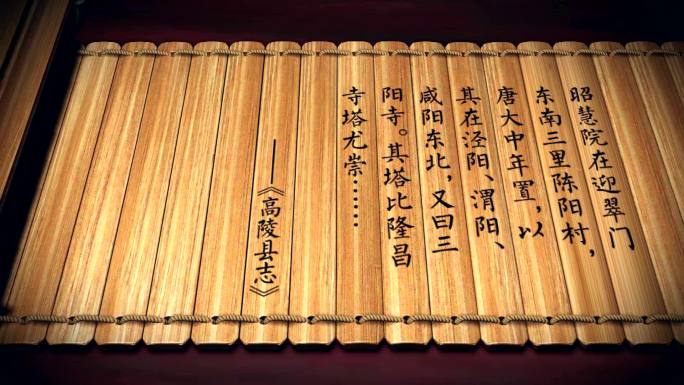 昭慧院在迎翠门
东南三里陈阳村，
唐大中年置，以
其在泾阳、渭阳、
咸阳东北，又曰三
阳寺。其塔比隆昌
寺塔尤崇……
——《高陵县志》